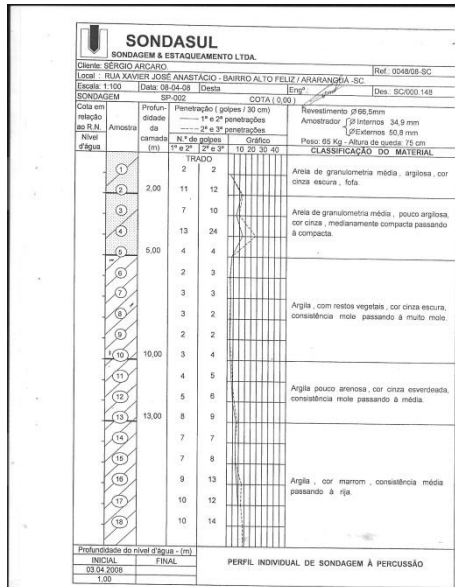 SONDASUL
SONDAGEM & ESTAQUEAMENTO LTDA.
Cliente: SÉRGIO ARCARO.
Ref.: 0048/08-SC
Local : RUA XAVIER JOSÉ ANASTÁCIO - BAIRRO ALTO FELIZ / ARARANGUÁ -SC.
Escala: 1:100 Data: 08-04-08 Desta Engº Des. SC/000.148
SONDAGEM SP-002 COTA ( 0,00 )
Cota em relação ao R.N.
Nível d'água
Amostra
Profundidade da camada (m)
Penetração ( golpes / 30 cm)
1ª e 2ª penetrações
2ª e 3ª penetrações
N.º de golpes
1ª e 2ª 2ª e 3ª
Gráfico
10 20 30 40
Revestimento Ø 66,5mm
Amostrador Ø Internos 34,9 mm
Ø Externos 50,8 mm
Peso: 65 Kg - Altura de queda: 75 cm
CLASSIFICAÇÃO DO MATERIAL
TRADO
1 2 2
2 2,00 11 12
3 7 10
4 13 24
5 5,00 4 4
6 2 3
7 3 3
8 3 2
9 2 2
10 10,00 3 4
11 4 5
12 5 6
13 13,00 8 9
14 7 7
15 7 8
16 9 13
17 10 12
18 10 14
Areia de granulometria média, argilosa, cor
cinza escura, fofa.
Areia de granulometria média , pouco argilosa,
cor cinza , medianamente compacta passando
à compacta.
Argila , com restos vegetais, cor cinza escura,
consistência mole passando à muito mole.
Argila pouco arenosa , cor cinza esverdeada,
consistência mole passando à média.
Argila , cor marrom , consistência média
passando à rija.
Profundidade do nível d'água - (m)
INICIAL FINAL
03.04.2008
1,00
PERFIL INDIVIDUAL DE SONDAGEM À PERCUSSÃO